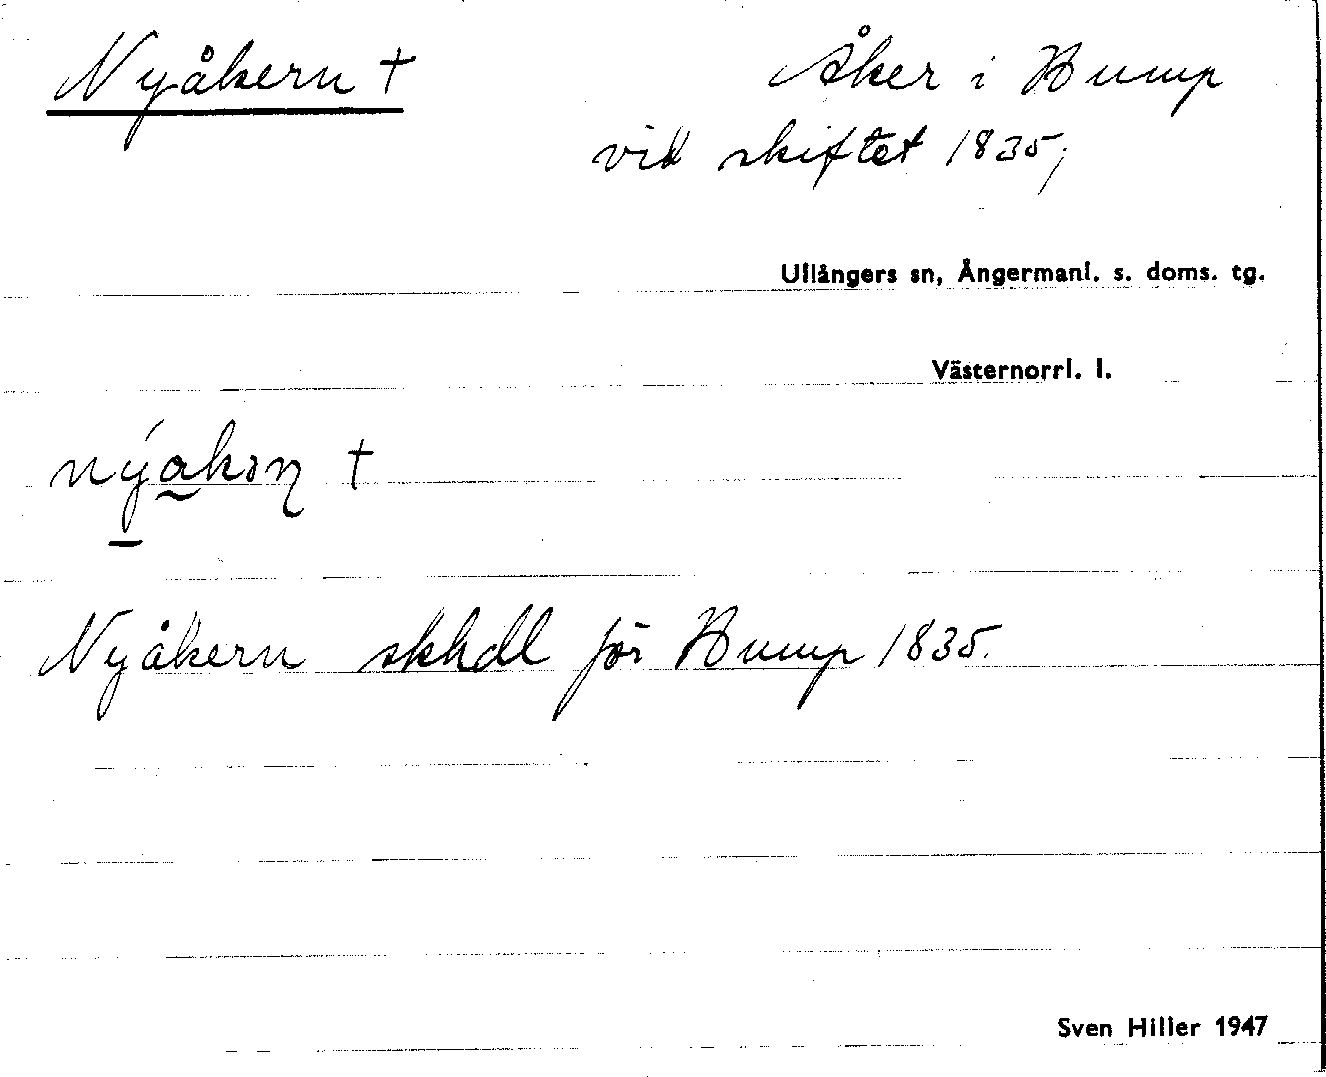 Nyåkern †
Åker i Hump
vid skiftet 1835;
Ullångers sn, Ångermanl. s. doms. tg.
Västernorrl. l.
†
Nyåkern skhdl för Hump 1835.
Sven Hiller 1947